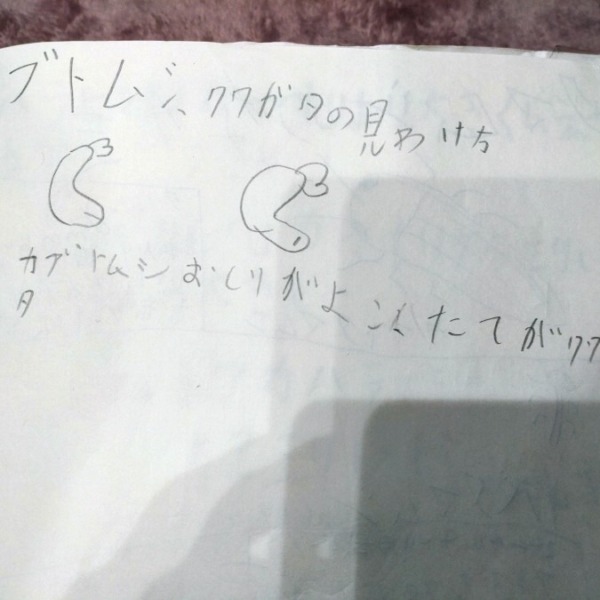 ブトムシ、クワガタの見わけ方
カブトムシおしりがよこ、たてがクワ
タ